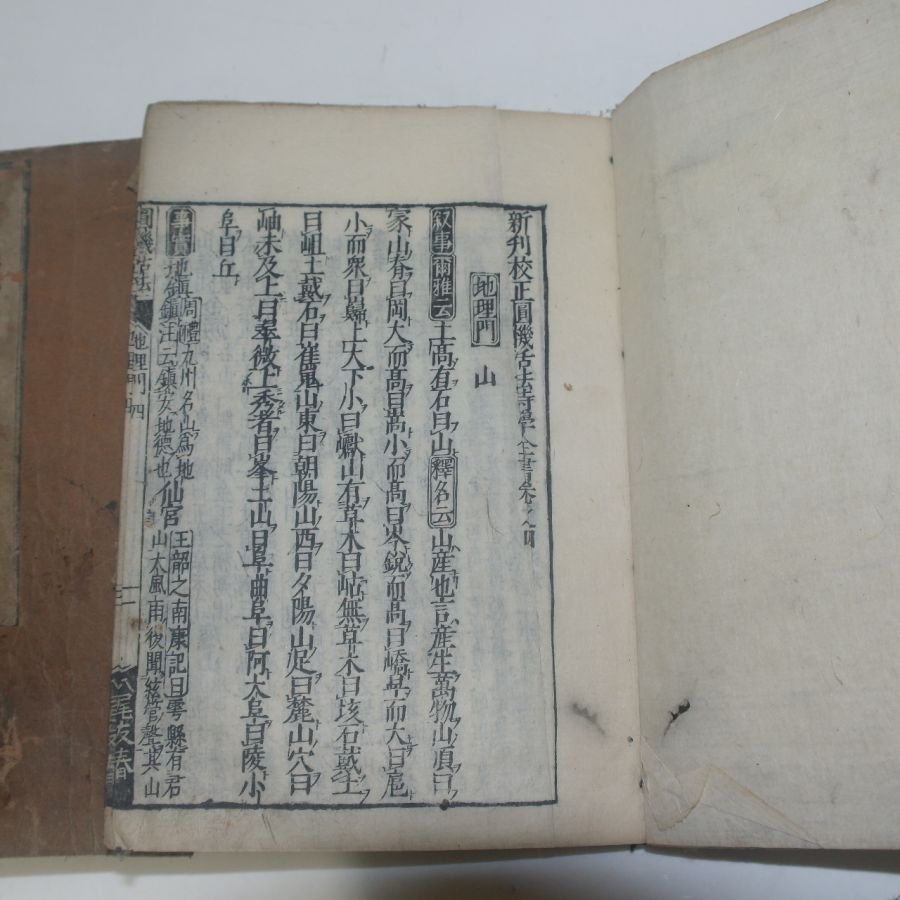 新刊校正圓機活法詩學全書卷之四
地理門 山
叙事 爾雅云 土高有石曰山 釋名云 山産也言産生萬物山頂曰
冢山脊曰岡大而高曰嵩小而高曰岑銳而高曰嶠卑而大曰扈
小而衆曰巋上大下小曰巘山有草木曰岵無草木曰垓石戴土
曰岨土戴石曰崔嵬山東曰朝陽山西曰夕陽山足曰麓山穴曰
岫未及上曰翠微上秀者曰峯土山曰阜曲阜曰阿大阜曰陵小
阜曰丘
事實 地鎮 周禮九州名山爲地
鎮注云鎮安地德也 仙宮 王韶之南康記曰雩縣有君
山大風雨後聞絃管聲其山
圓機活法 地理門 四 二 八尾友春